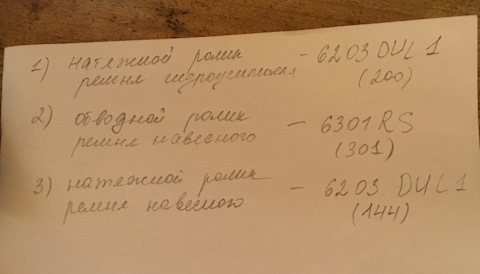 1) натяжной ролик - 6203 DUL1
ремня гидроусилителя (200)
2) обводной ролик - 6301 RS
ремня навесного (301)
3) натяжной ролик - 6203 DUL1
ремня навесного (144)